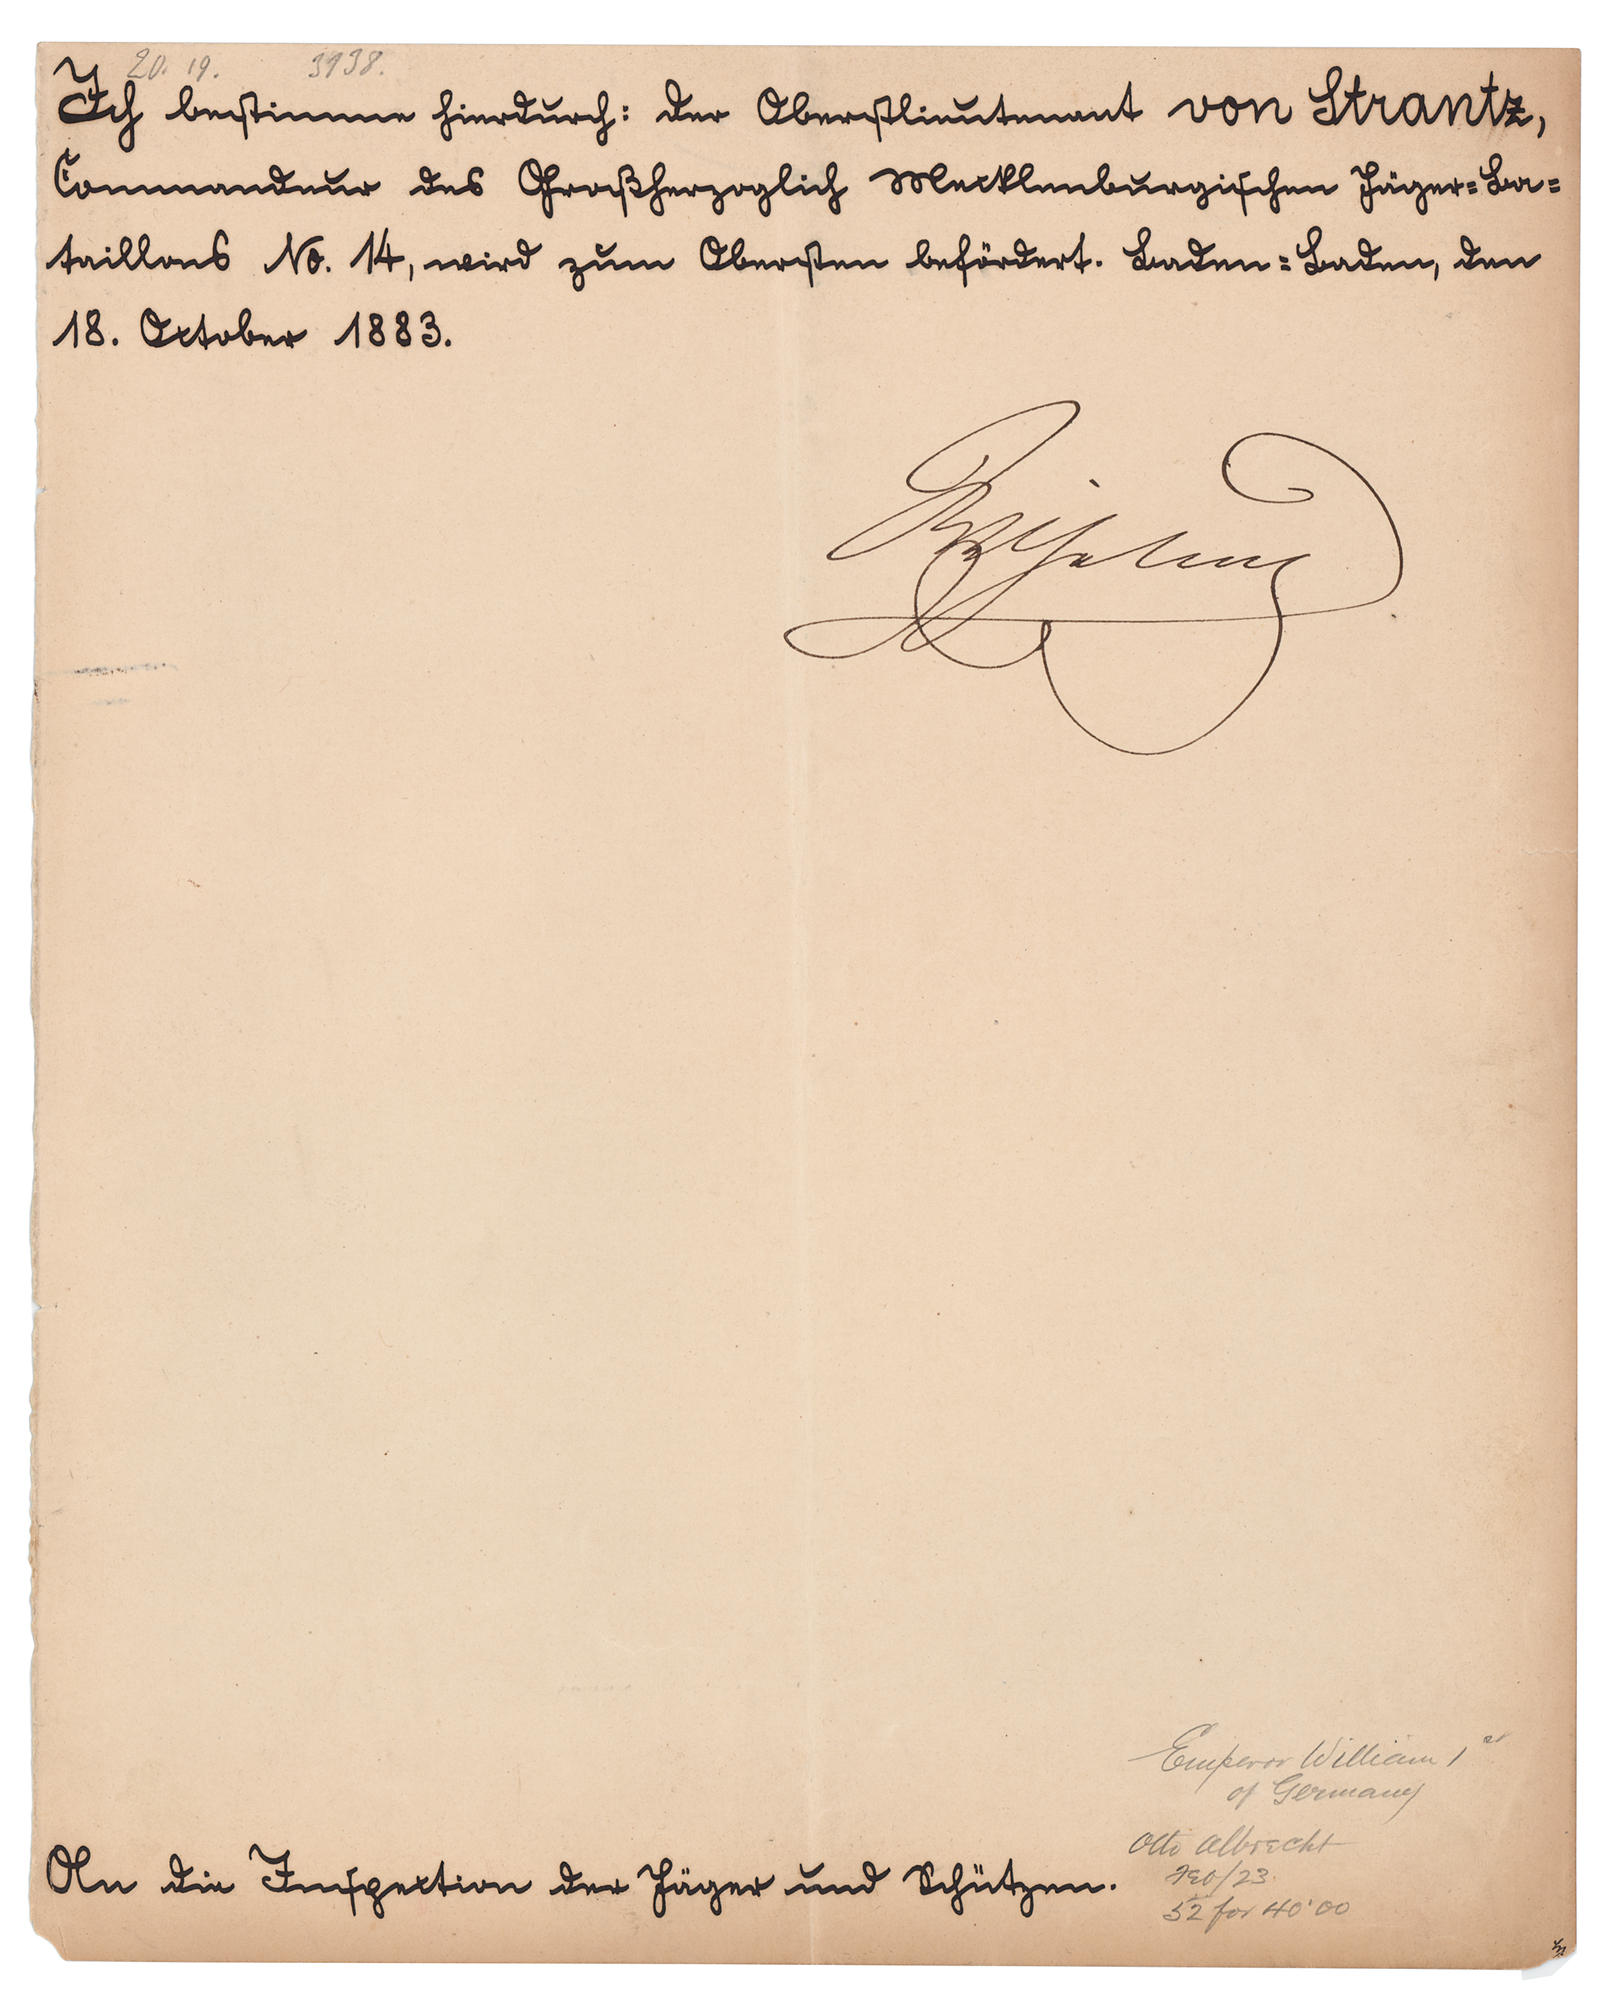 20. 19. 3938.
Ich bestimme hierdurch: der Oberstlieutenant von Strantz,
Commandeur des Großherzoglich Mecklenburgischen Jäger=Ba=
taillons No. 14, wird zum Obersten befördert. Baden=Baden, den
18. October 1883.
Wilhelm
Emperor William 1st
of Germany
Otto Albrecht
/23.
52 for 40.00
An die Inspection der Jäger und Schützen.